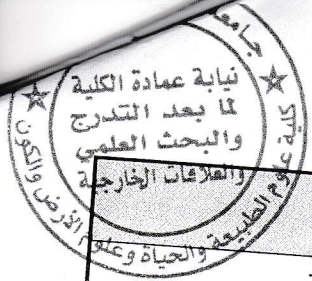 جامعة
نيابة عمادة الكلية
لما بعد التدرج
والبحث العلمي
والعلاقات الخارجية
كلية علوم الطبيعة والحياة وعلوم الأرض والكون